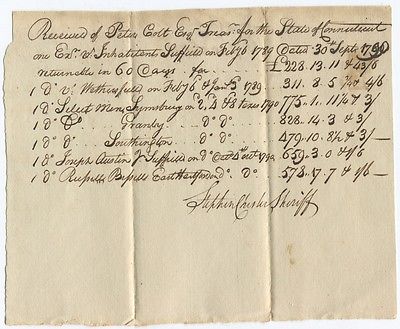 Received of Peter Colt Esqr Treasr for the State of Connecticut
one Exn vs Inhabitants Suffield on Feby 6 1789 Dated 30th Sept. 1790
returnable in 60 Days for £228.13.11 & 43/6
1 Do vs Wethersfield on Feby 6 & Jany 1789. 311.8.5 4/6
1 Do Select Men, Symsbury on 2/, 4 & 8 taxes 1790 775.1.11 ¼ & 3/
1 Do Do Granby Do 828.14.3 & 3/
1 Do Do Southington Do 479.10.8 ¼ & 3/
1 Do Joseph Austin Suffield on Do 1790 659.3.0 & 1/6
1 Do Russell Bissell East Hartford on Do Do 573.17.7 & 1/6
Stephen Chester Sheriff